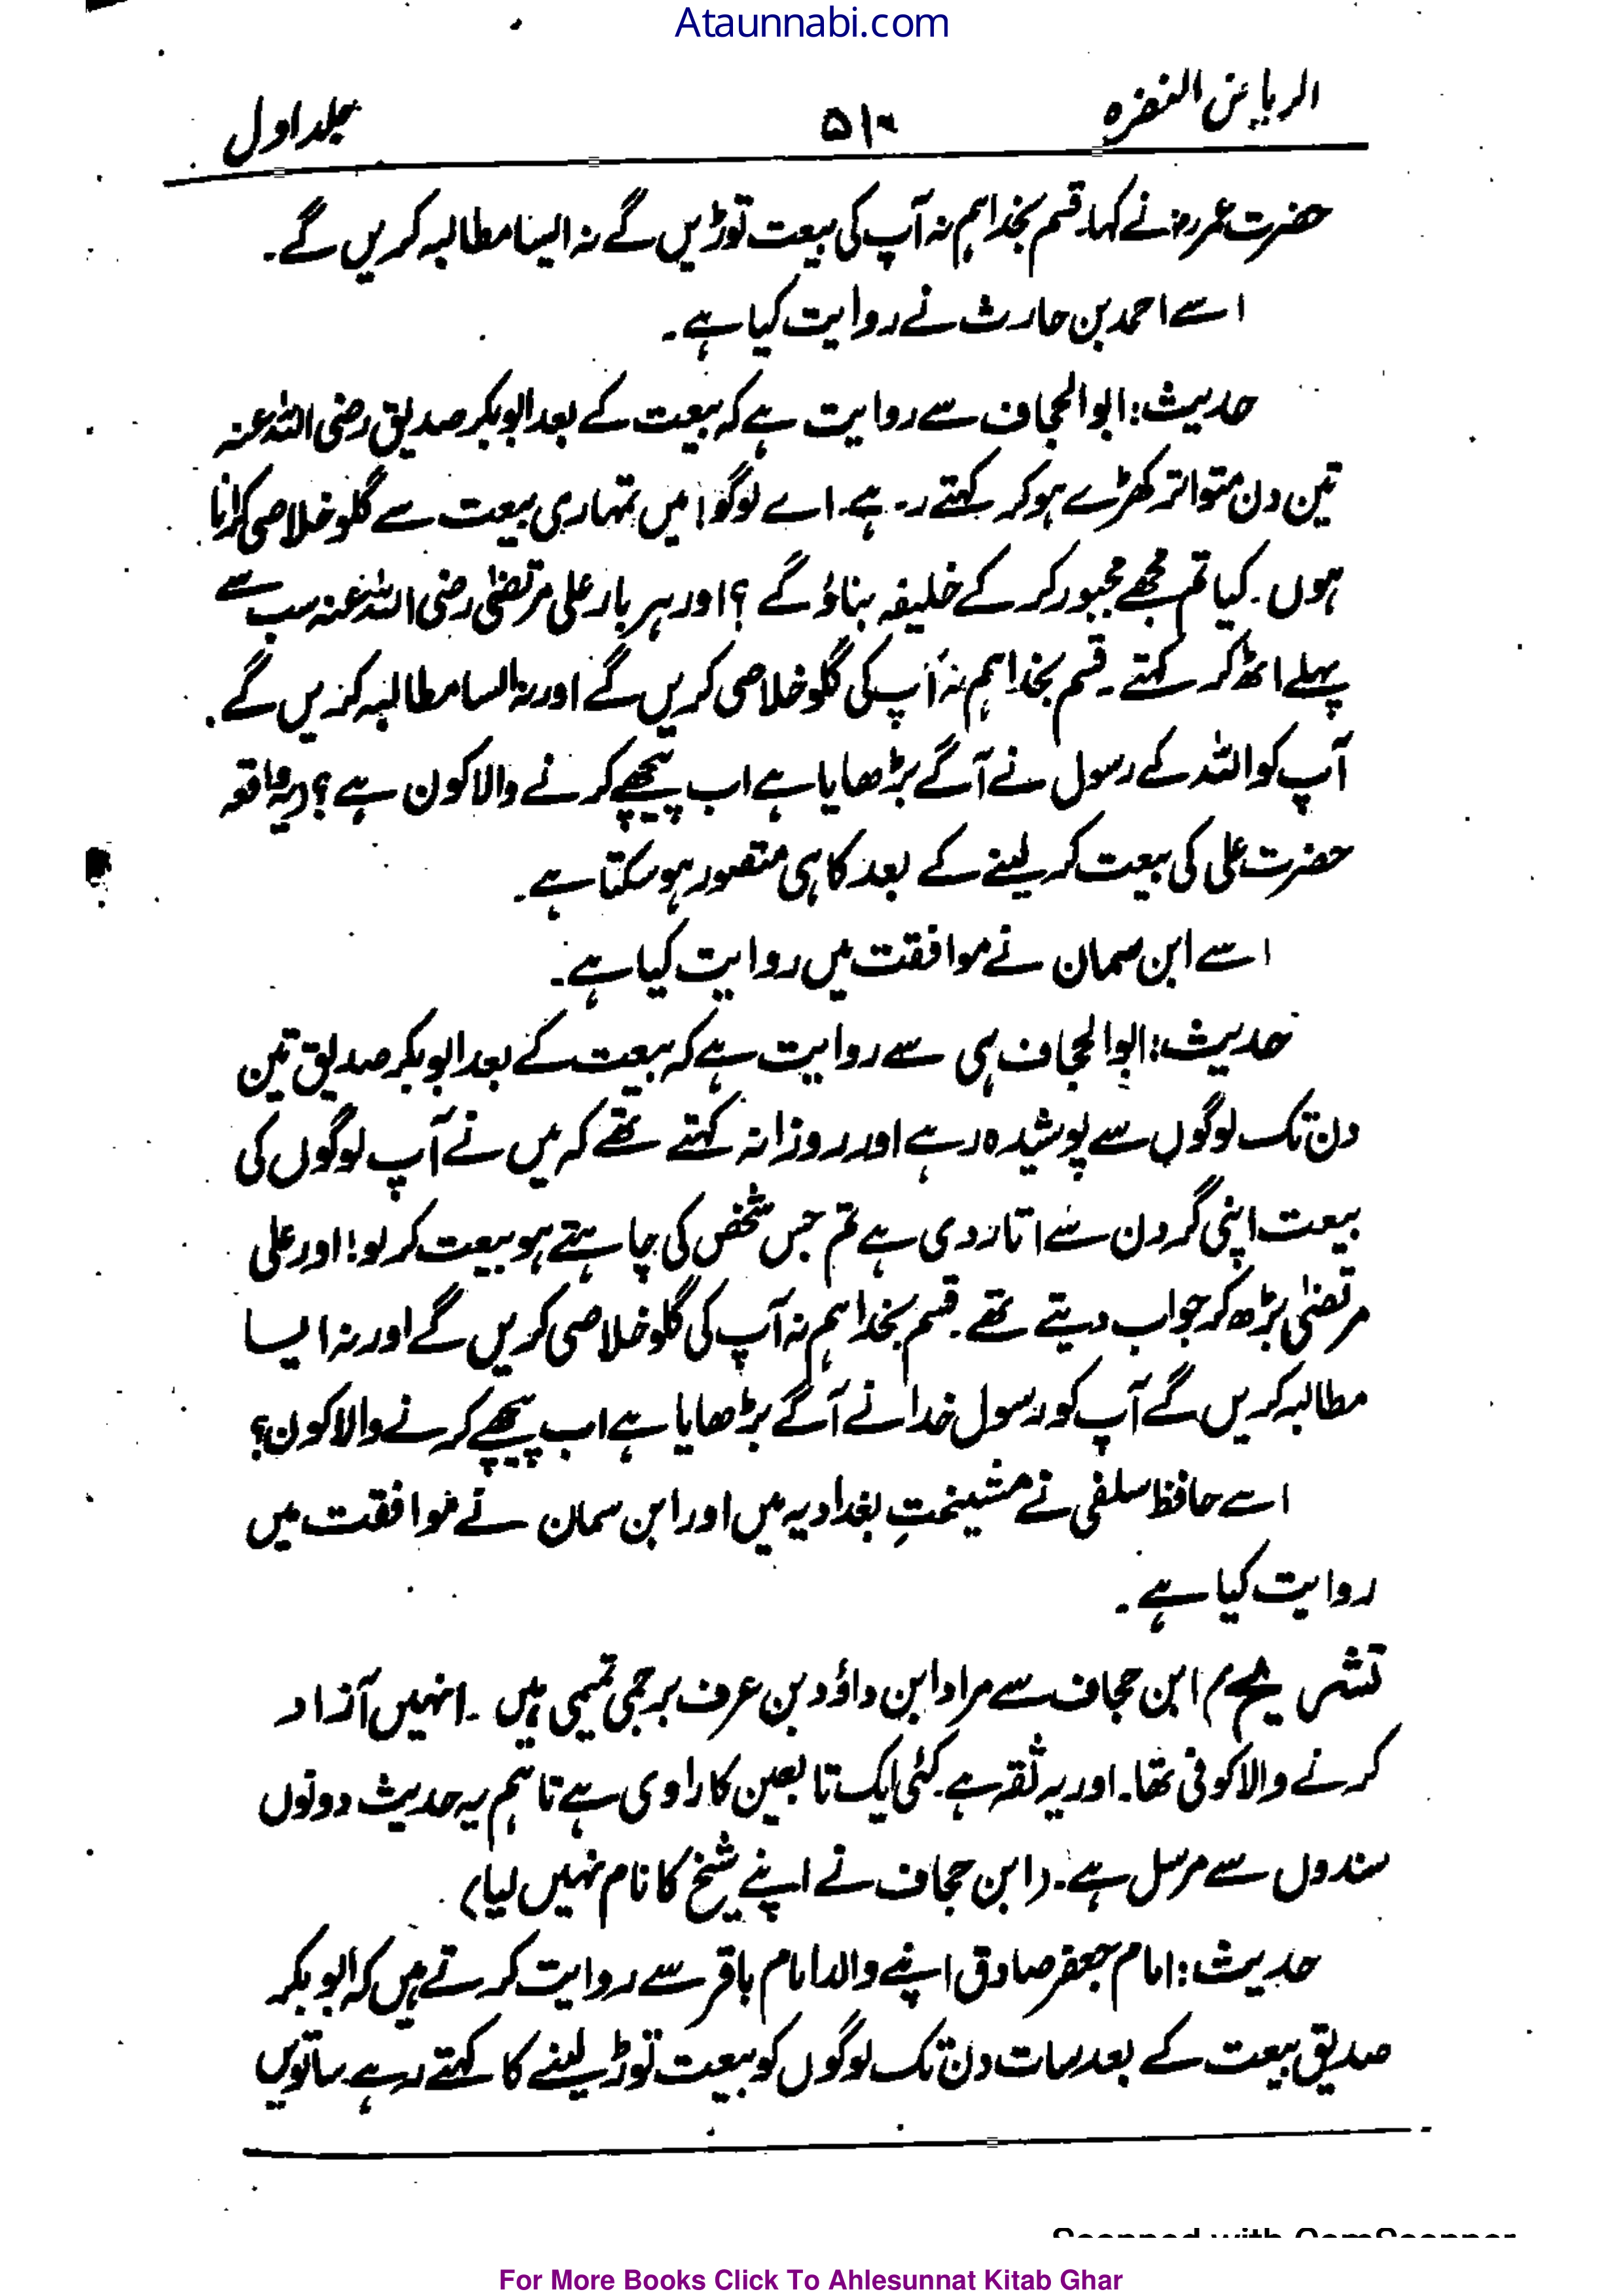 Ataunnabi.com
الریاض النضرہ ۵۱۰ جلد اول
حضرت عمرؓ نے کہا۔ قسم بخدا ہم نہ آپ کی بیعت توڑیں گے نہ ایسا مطالبہ کریں گے۔
اسے احمد بن حارث نے روایت کیا ہے۔
حدیث: ابو الحجاف سے روایت ہے کہ بیعت کے بعد ابوبکر صدیق رضی اللہ عنہ
تین دن متواتر کھڑے ہو کر کہتے رہے۔ اے لوگو! میں تمہاری بیعت سے گلو خلاصی کراتا
ہوں۔ کیا تم مجھے مجبور کر کے خلیفہ بناؤ گے ؟ اور ہر بار علی مرتضیٰ رضی اللہ عنہ سب سے
پہلے اٹھ کر کہتے۔ قسم بخدا ہم نہ آپ کی گلو خلاصی کریں گے اور نہ ایسا مطالبہ کریں گے۔
آپ کو اللہ کے رسول نے آگے بڑھایا ہے اب پیچھے کرنے والا کون ہے ؟ (یہ واقعہ
حضرت علی کی بیعت کر لینے کے بعد کا ہی متصور ہو سکتا ہے۔
اسے ابن سمان نے موافقت میں روایت کیا ہے۔
حدیث: ابو الحجاف ہی سے روایت ہے کہ بیعت کے بعد ابوبکر صدیق تین
دن تک لوگوں سے پوشیدہ رہے اور روزانہ کہتے تھے کہ میں نے آپ لوگوں کی
بیعت اپنی گردن سے اتار دی ہے تم جس شخص کی چاہتے ہو بیعت کر لو! اور علی
مرتضیٰ بڑھ کر جواب دیتے تھے۔ قسم بخدا ہم نہ آپ کی گلو خلاصی کریں گے اور نہ ایسا
مطالبہ کریں گے آپ کو رسول خدا نے آگے بڑھایا ہے اب پیچھے کرنے والا کون؟
اسے حافظ سلفی نے مشیختِ بغدادیہ میں اور ابن سمان نے موافقت میں
روایت کیا ہے۔
تشریح) ابن حجاف سے مراد ابن داؤد بن عرف برجمی تمیمی ہیں۔ انہیں آزاد
کرنے والا کوفی تھا۔ اور یہ ثقہ ہے۔ کئی ایک تابعین کا راوی ہے تاہم یہ حدیث دونوں
سندوں سے مرسل ہے۔ (ابن حجاف نے اپنے شیخ کا نام نہیں لیا)
حدیث: امام جعفر صادق اپنے والد امام باقر سے روایت کرتے ہیں کہ ابوبکر
صدیق بیعت کے بعد سات دن تک لوگوں کو بیعت توڑ لینے کا کہتے رہے ساتویں
Scanned with CamScanner
For More Books Click To Ahlesunnat Kitab Ghar